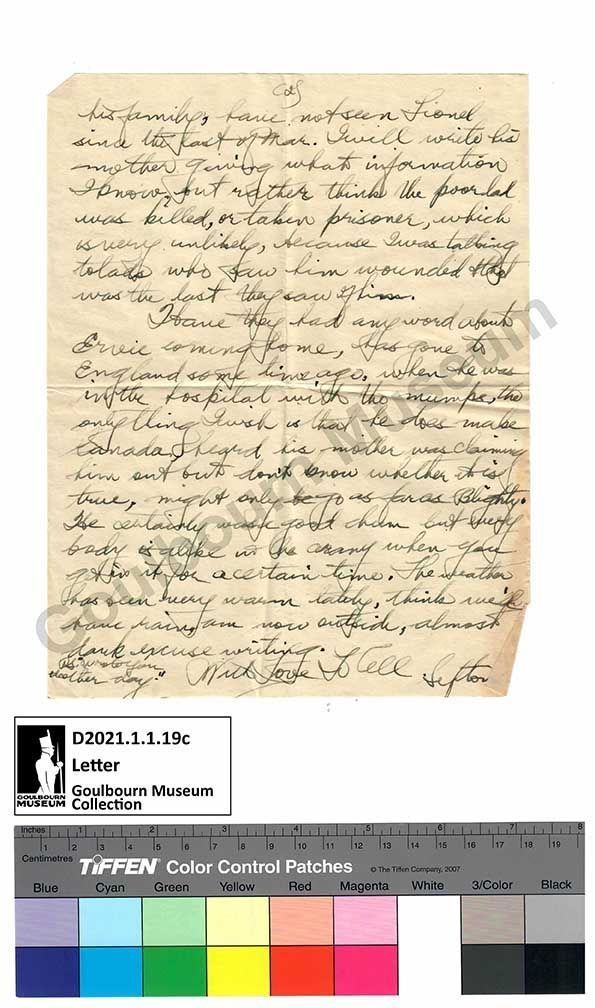 (2)
his family, have not seen Lionel
since the last of Mar. I will write his
mother giving what information
I know, but rather think the poor lad
was killed, or taken prisoner, which
is very unlikely, because I was talking
to lads who saw him wounded & that
was the last they saw of him.
Have they had any word about
Ervie coming home, has gone to
England some time ago, when he was
in the hospital with the mumps, the
only thing I wish is that he does make
Canada, I heard his mother was claiming
him out but don't know whether it is
true, might only be go as far as Blighty.
He certainly was a good chum but every
body is alike in the army when you
get in it for a certain time. The weather
has been very warm lately, think we'll
have rain, am now outside, almost
dark excuse writing.
With Love To All Sefton
P.S. wrote you
another day."
Goulbourn Museum
GOULBOURN
MUSEUM
D2021.1.1.19c
Letter
Goulbourn Museum
Collection
Inches 1 2 3 4 5 6 7 8
Centimetres 1 2 3 4 5 6 7 8 9 10 11 12 13 14 15 16 17 18 19
TIFFEN Color Control Patches © The Tiffen Company, 2007
Blue Cyan Green Yellow Red Magenta White 3/Color Black